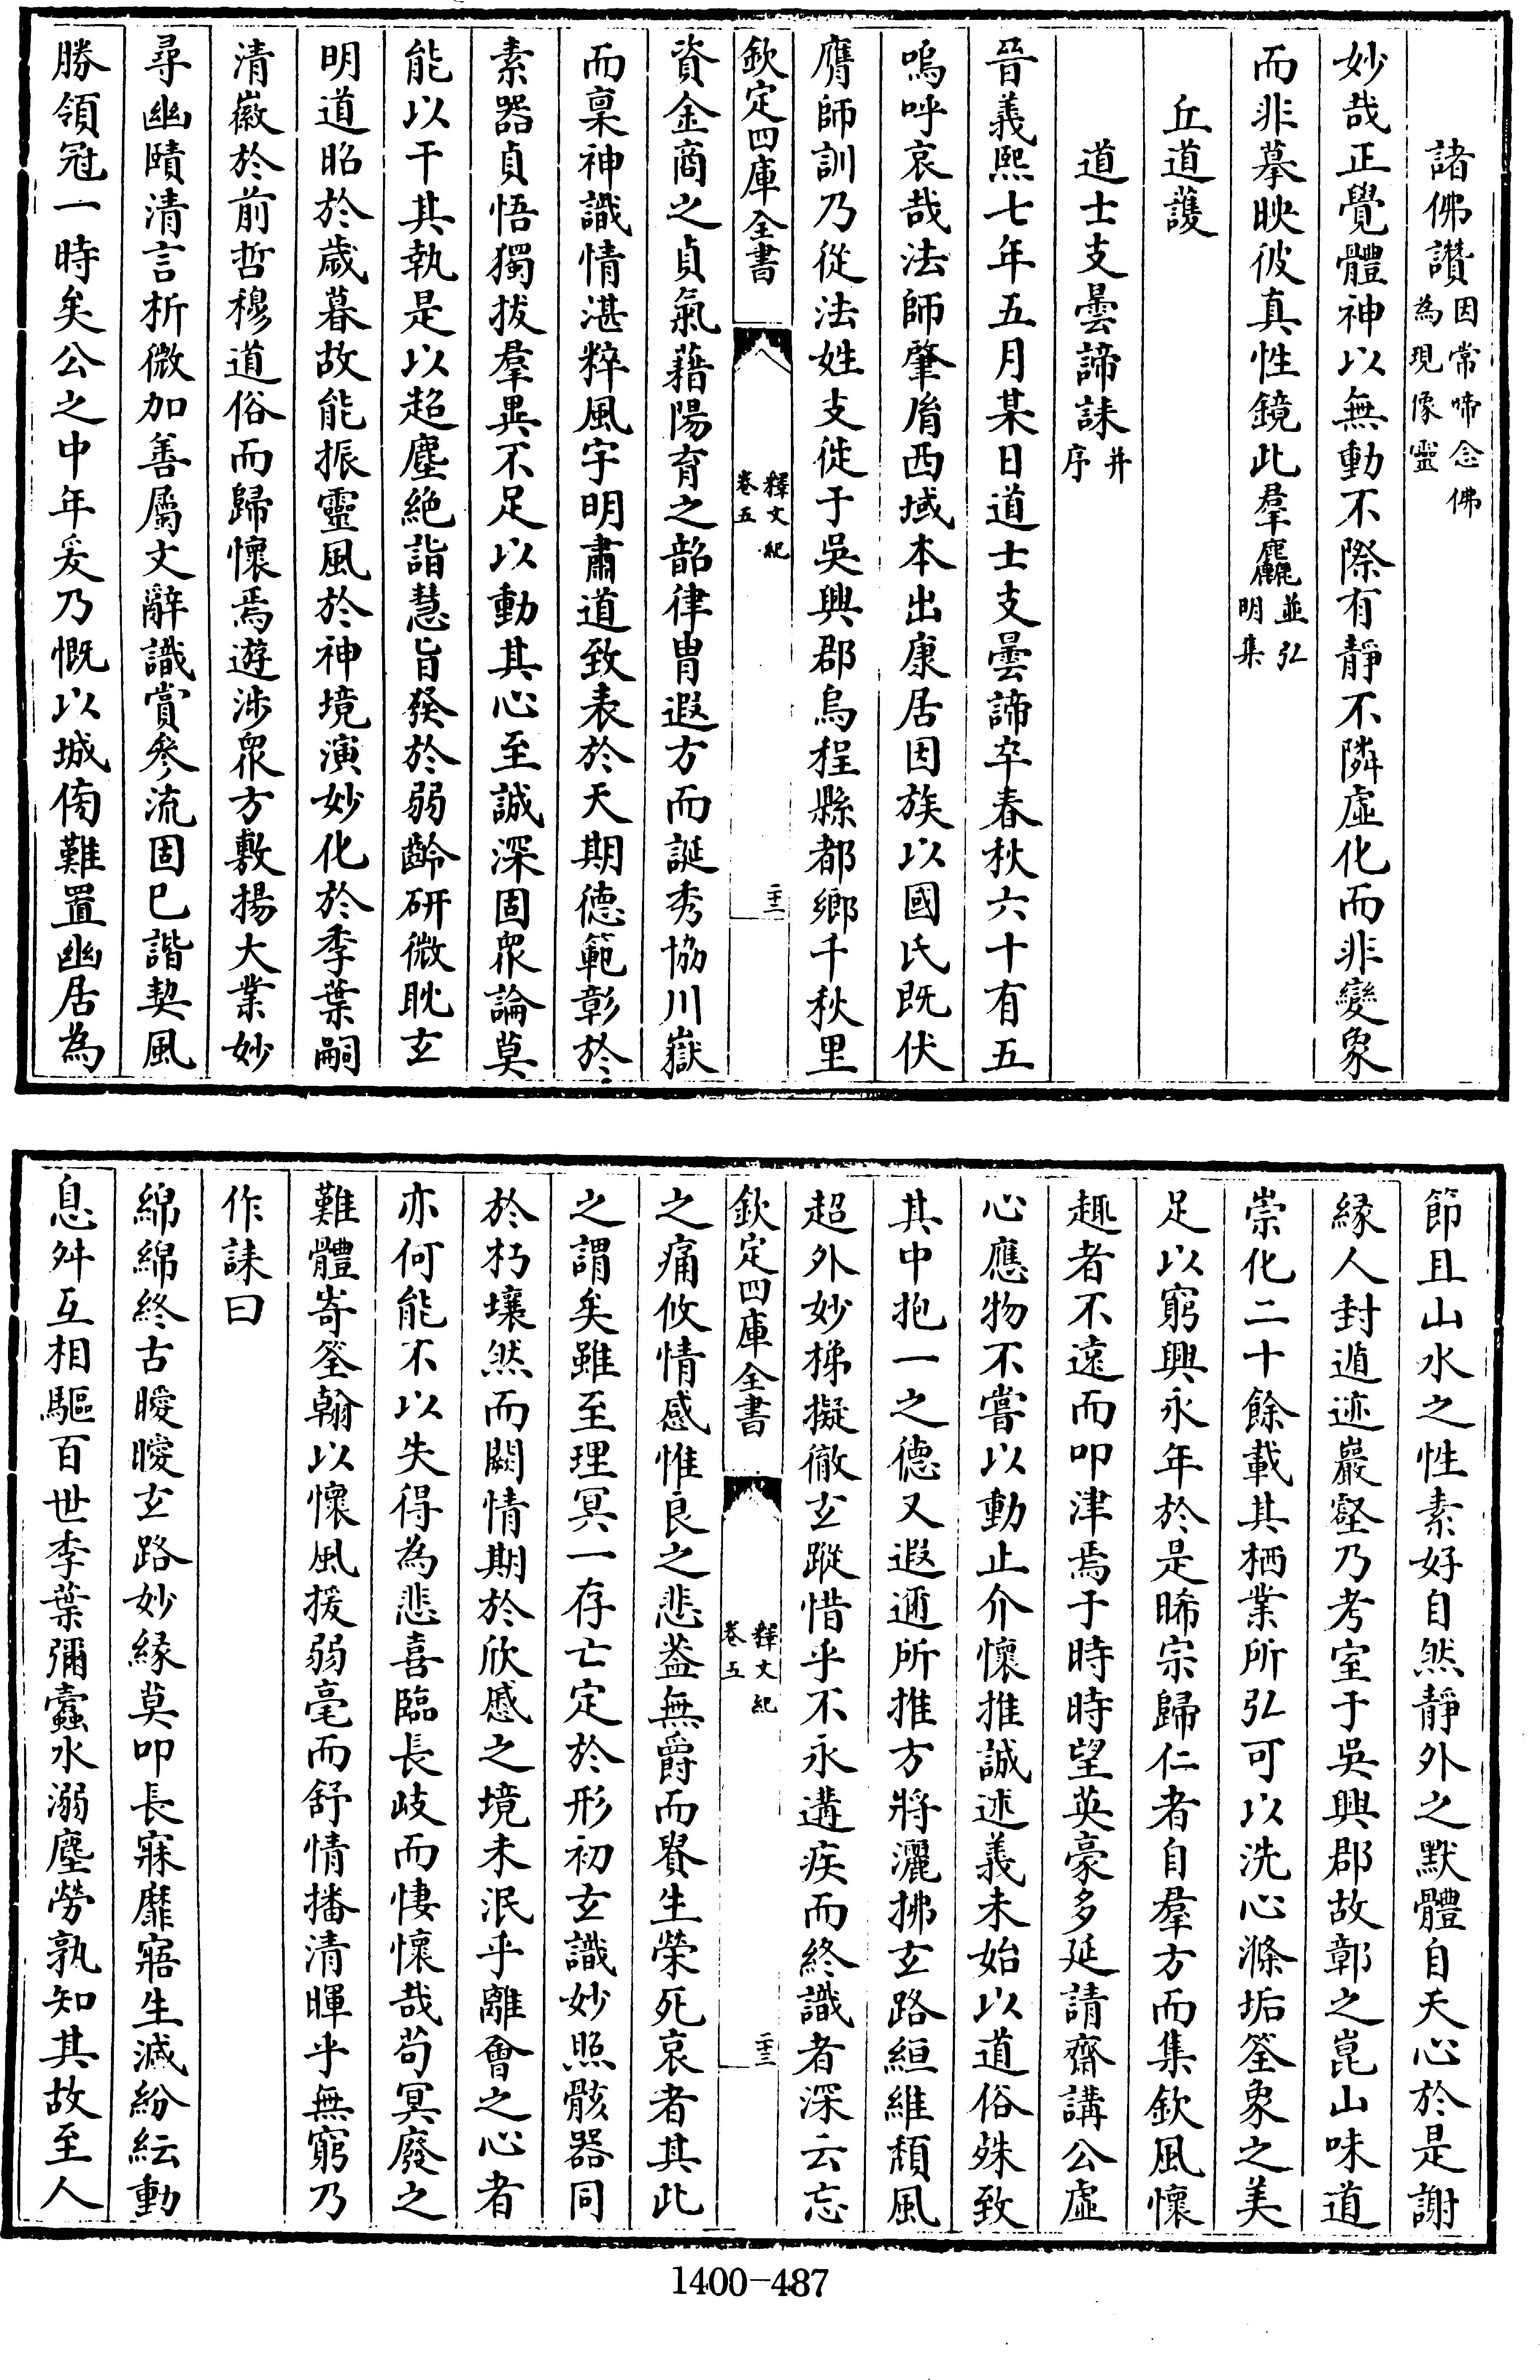 諸佛讚因常啼念佛為現像靈
妙哉正覺體神以無動不際有靜不隣虛化而非變象
而非摹映彼真性鏡此羣麤並弘明集
丘道護
道士支曇諦誄并序
晉義熙七年五月某日道士支曇諦卒春秋六十有五
嗚呼哀哉法師肇胤西域本出康居因族以國氏既伏
膺師訓乃從法姓支徙于吳興郡烏程縣都鄉千秋里
欽定四庫全書 釋文紀卷五 二十二
資金商之貞氣藉陽育之韶律胄遐方而誕秀協川嶽
而稟神識情湛粹風宇明肅道致表於天期德範彰於
素器貞悟獨拔羣異不足以動其心至誠深固衆論莫
能以干其執是以超塵絶詣慧旨發於弱齡研微耽玄
明道昭於歲暮故能振靈風於神境演妙化於季葉嗣
清徽於前哲穆道俗而歸懷焉遊涉衆方敷揚大業妙
尋幽賾清言析微加善屬文辭識賞參流固已諧契風
勝領冠一時矣公之中年爰乃慨以城傍難置幽居為
節且山水之性素好自然靜外之默體自天心於是謝
緣人封遁迹巖壑乃考室于吳興郡故鄣之崑山味道
崇化二十餘載其栖業所弘可以洗心滌垢筌象之美
足以窮興永年於是晞宗歸仁者自羣方而集欽風懷
趣者不遠而叩津焉于時時望英豪多延請齋講公虛
心應物不嘗以動止介懷推誠述義未始以道俗殊致
其中抱一之德又遐邇所推方將灑拂玄路絙維頹風
超外妙梯擬徹玄蹤惜乎不永遘疾而終識者深云忘
欽定四庫全書 釋文紀卷五 二十三
之痛攸情感惟良之悲葢無爵而貴生榮死哀者其此
之謂矣雖至理冥一存亡定於形初玄識妙照骸器同
於朽壤然而闕情期於欣慼之境未泯乎離會之心者
亦何能不以失得為悲喜臨長岐而悽懷哉苟冥廢之
難體寄筌翰以懷風援弱毫而舒情播清暉乎無窮乃
作誄曰
綿綿終古曖曖玄路妙緣莫叩長寐靡寤生滅紛紜動
息舛互相驅百世季葉彌蠹水溺塵勞孰知其故至人
1400-487